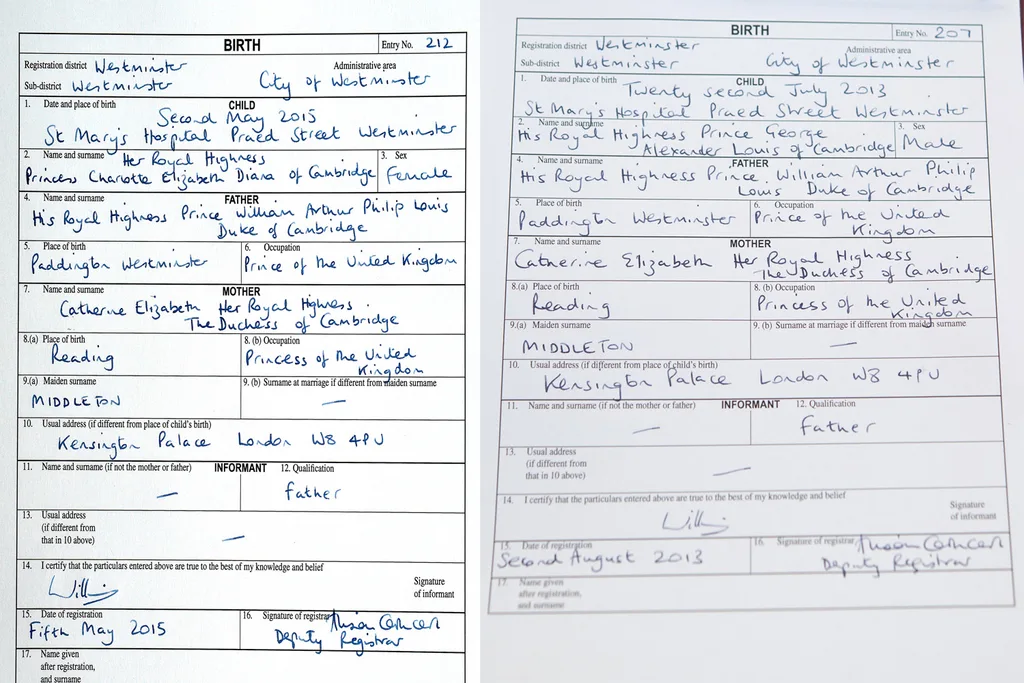 BIRTH Entry No. 212
Registration district Westminster Administrative area
Sub-district Westminster City of Westminster
1. Date and place of birth CHILD
Second May 2015
St Mary's Hospital Praed Street Westminster
2. Name and surname Her Royal Highness 3. Sex
Princess Charlotte Elizabeth Diana of Cambridge Female
4. Name and surname FATHER
His Royal Highness Prince William Arthur Philip Louis
Duke of Cambridge
5. Place of birth 6. Occupation
Paddington Westminster Prince of the United Kingdom
7. Name and surname MOTHER
Catherine Elizabeth Her Royal Highness
The Duchess of Cambridge
8.(a) Place of birth 8. (b) Occupation
Reading Princess of the United
Kingdom
9.(a) Maiden surname 9. (b) Surname at marriage if different from maiden surname
MIDDLETON —
10. Usual address (if different from place of child's birth)
Kensington Palace London W8 4PU
11. Name and surname (if not the mother or father) INFORMANT 12. Qualification
— Father
13. Usual address
(if different from
that in 10 above) —
14. I certify that the particulars entered above are true to the best of my knowledge and belief
Signature
of informant
15. Date of registration 16. Signature of registrar
Fifth May 2015 Deputy Registrar
17. Name given
after registration,
and surname
BIRTH Entry No. 207
Registration district Westminster Administrative area
Sub-district Westminster City of Westminster
1. Date and place of birth CHILD
Twenty second July 2013
St Mary's Hospital Praed Street Westminster
2. Name and surname 3. Sex
His Royal Highness Prince George
Alexander Louis of Cambridge Male
4. Name and surname FATHER
His Royal Highness Prince William Arthur Philip
Louis Duke of Cambridge
5. Place of birth 6. Occupation
Paddington Westminster Prince of the United
Kingdom
7. Name and surname MOTHER
Catherine Elizabeth Her Royal Highness
The Duchess of Cambridge
8.(a) Place of birth 8. (b) Occupation
Reading Princess of the United
Kingdom
9.(a) Maiden surname 9. (b) Surname at marriage if different from maiden surname
MIDDLETON —
10. Usual address (if different from place of child's birth)
Kensington Palace London W8 4PU
11. Name and surname (if not the mother or father) INFORMANT 12. Qualification
— Father
13. Usual address
(if different from
that in 10 above) —
14. I certify that the particulars entered above are true to the best of my knowledge and belief
Signature
of informant
15. Date of registration 16. Signature of registrar
Second August 2013 Deputy Registrar
17. Name given
after registration,
and surname